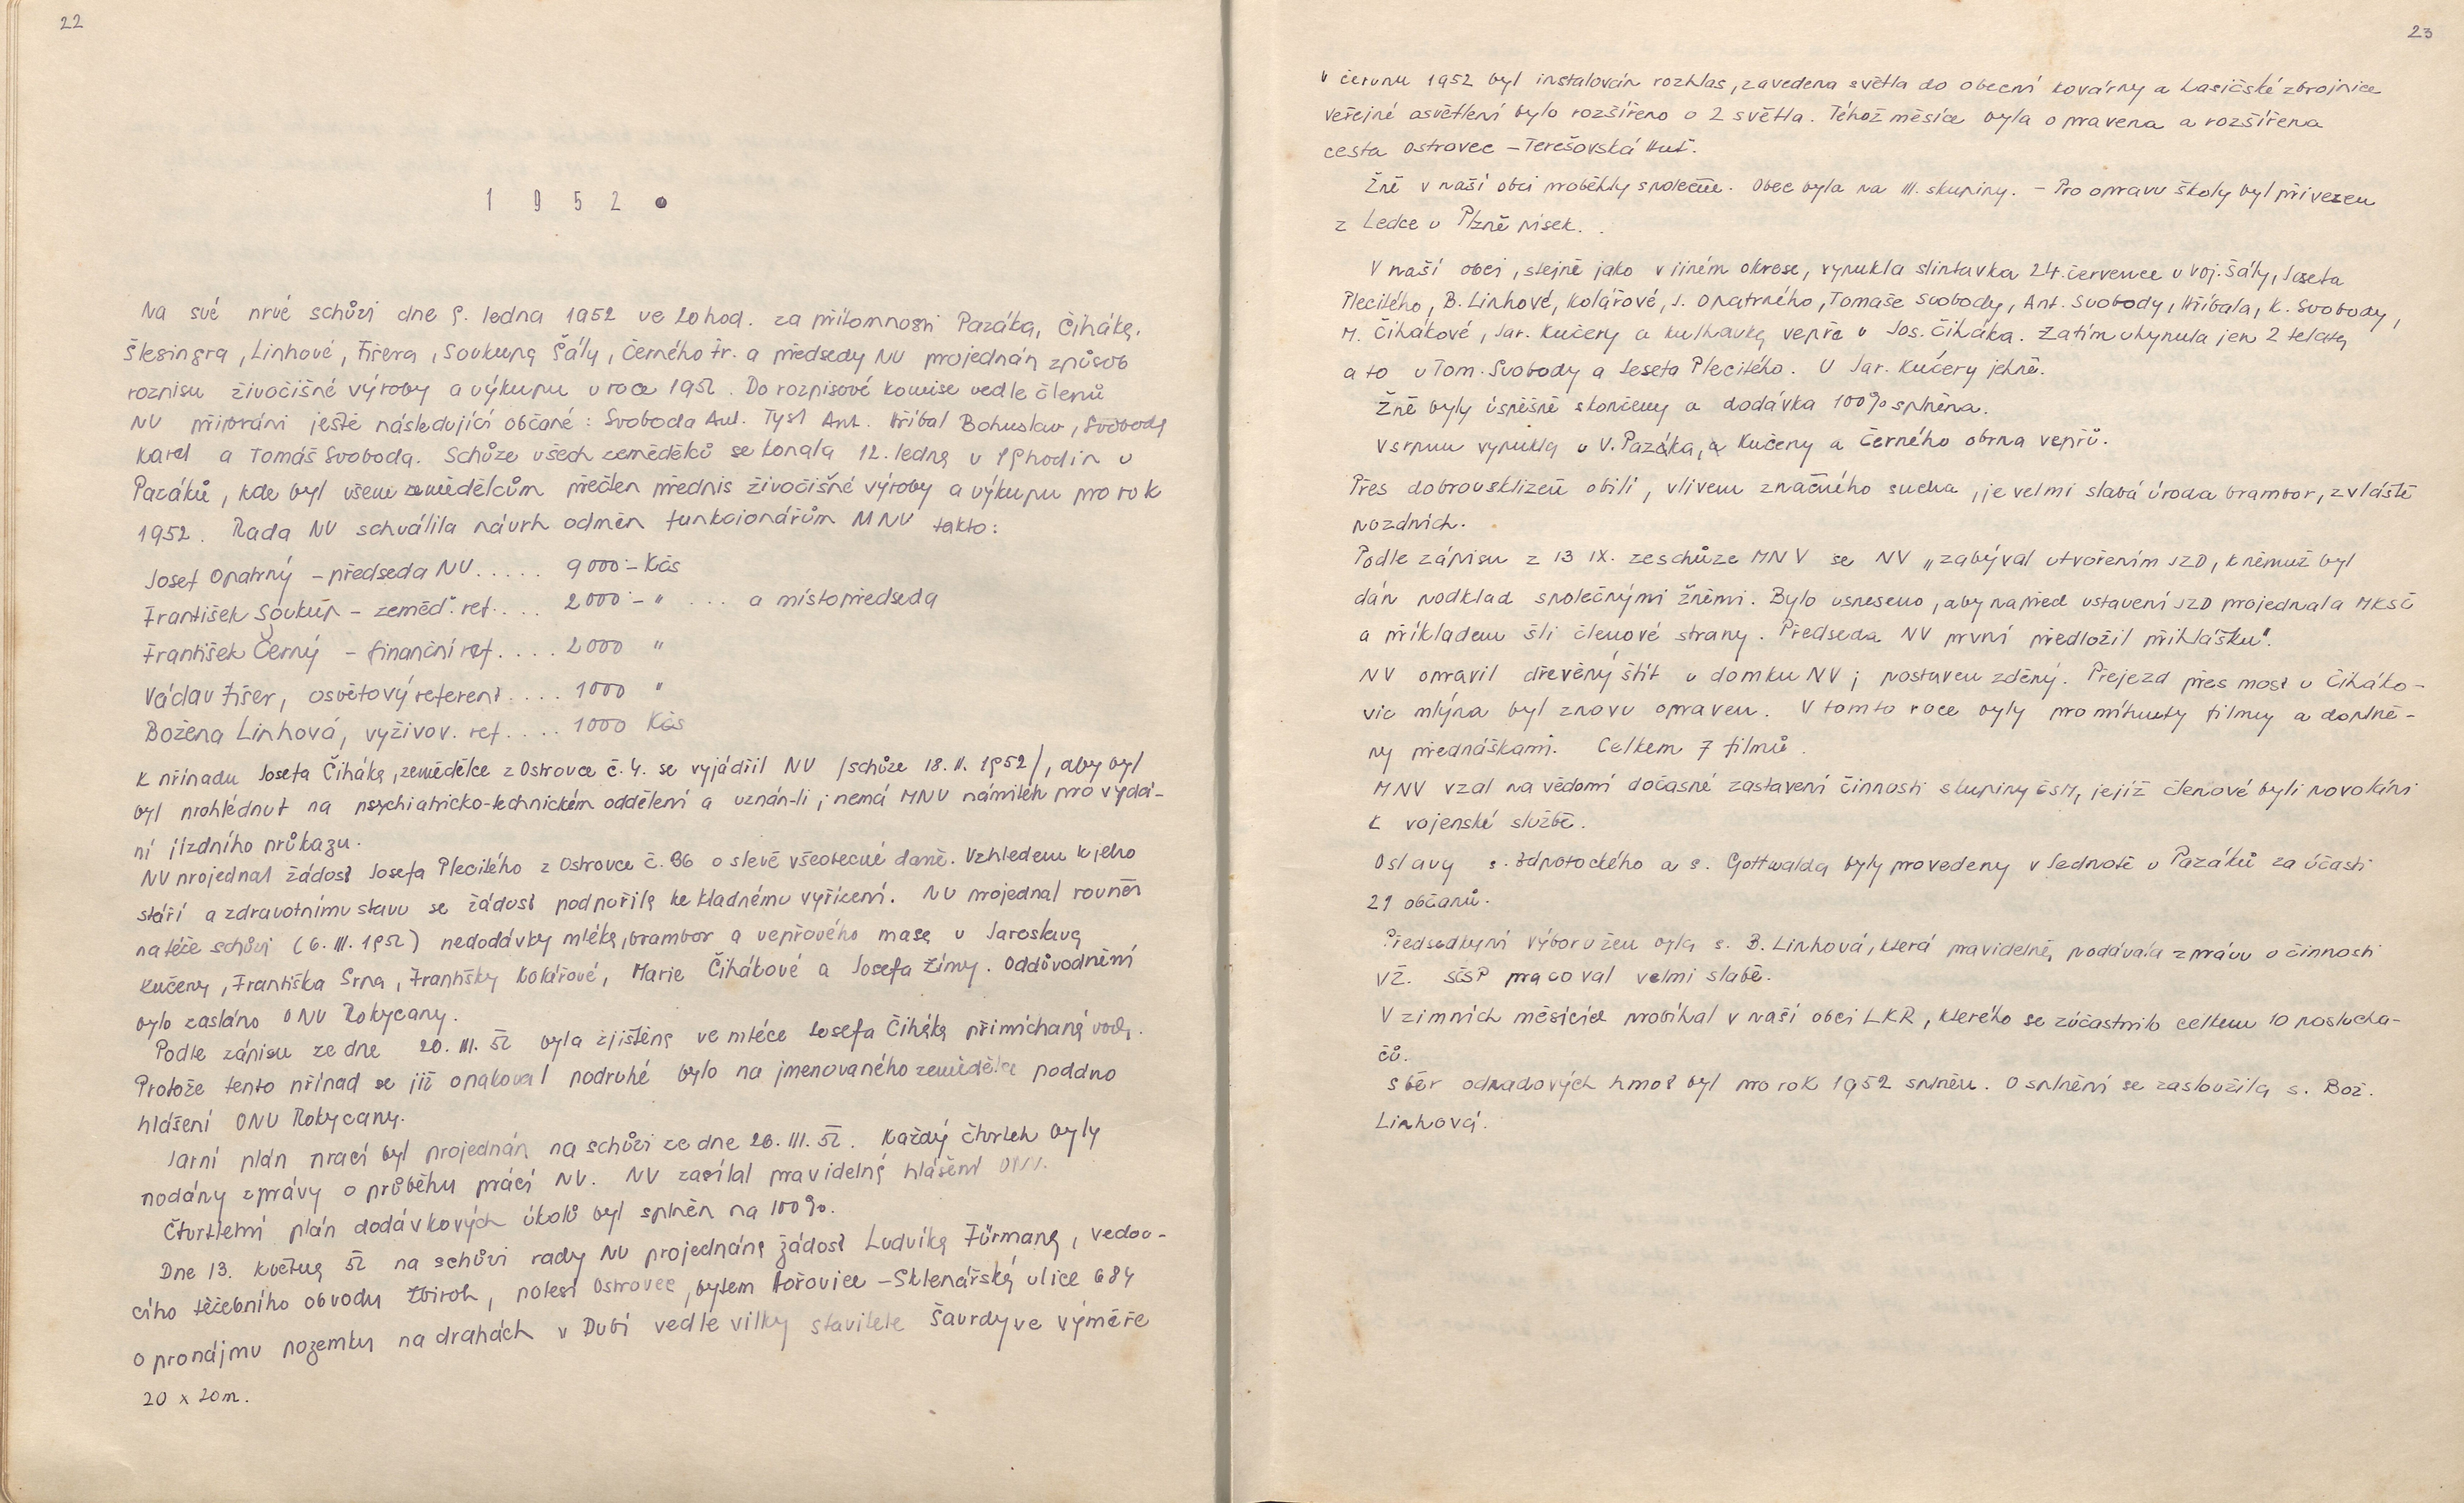 22
1 9 5 2 .
Na své prvé schůzi dne 9. ledna 1952 ve 20 hod. za přítomnosti Pazáka, Čiháka,
Šlesingra, Linhové, Fišera, Soukupa Šály, Černého Fr. a předsedy NV projednán způsob
rozpisu živočišné výroby a výkupu v roce 1952. Do rozpisové komise vedle členů
NV přibráni ještě následující občané: Svoboda Ant. Tyst Ant. Hříbal Bohuslav, Svoboda
Karel a Tomáš Svoboda. Schůze všech zemědělců se konala 12. ledna v 19 hodin u
Pazáků, kde byl všem zemědělcům přečten předpis živočišné výroby a výkupu pro rok
1952. Rada NV schválila návrh odměn funkcionářům MNV takto:
Josef Opatrný - předseda NV..... 9000 - Kčs
František Soukup - zeměd. ref.... 2000 - " ... a místopředseda
František Černý - finanční ref..... 2000 "
Václav Fišer, osvětový referent.... 1000 "
Božena Linhová, vyživov. ref..... 1000 Kčs
K případu Josefa Čiháka, zemědělce z Ostrovce č. 4. se vyjádřil NV /schůze 18. II. 1952/, aby byl
byl prohlédnut na psychiatricko-technickém oddělení a uznán-li; nemá MNV námitek pro vydá-
ní jízdního průkazu.
NV projednal žádost Josefa Plecitého z Ostrovce č. 36 o slevě všeobecné daně. Vzhledem k jeho
stáří a zdravotnímu stavu se žádost podpořila ke kladnému vyřízení. NV projednal rovněž
na téže schůzi (6. III. 1952) nedodávky mléka, brambor a vepřového masa u Jaroslava
Kučery, Františka Srna, Františky Kolářové, Marie Čihákové a Josefa Zímy. Oddůvodnění
bylo zasláno ONV Rokycany.
Podle zápisu ze dne 20. III. 52 byla zjištěna ve mléce Josefa Čiháka přimíchaná voda.
Protože tento případ se již opakoval podruhé bylo na jmenovaného zemědělce poddno
hlášení ONV Rokycany.
Jarní plán prací byl projednán na schůzi ze dne 26. III. 52. Každý čtvrtek byly
podány zprávy o průběhu prácí NV. NV zasílal pravidelná hlášení ONV.
Čtvrtletní plán dodávkových úkolů byl splněn na 100%.
Dne 13. května 52 na schůzi rady NV projednána žádost Ludvíka Fürmana, vedou-
cího těžebního obvodu Zbiroh, polesí Ostrovec, bytem Hořovice - Sklenářská ulice 684
o pronájmu pozemku na drahách v Dubí vedle vilky stavitele Šavrdy ve výměře
20 x 20 m.
23
V červnu 1952 byl instalován rozhlas, zavedena světla do obecní kovárny a hasičské zbrojnice
veřejné osvětlení bylo rozšířeno o 2 světla. Téhož měsíce byla opravena a rozšířena
cesta Ostrovec - Terešovská Huť.
Žně v naší obci proběhly společně. Obec byla na III. skupiny. - Pro opravu školy byl přivezen
z Ledce u Plzně písek.
V naší obci, stejně jako v jiném okrese, vypukla slintavka 24. července u Voj. Šály, Josefa
Plecitého, B. Linhové, Kolářové, J. Opatrného, Tomaše Svobody, Ant. Svobody, Hříbala, K. Svobody,
M. Čihákové, Jar. Kučery a kulhavka vepře u Jos. Čiháka. Zatím uhynula jen 2 telata
a to u Tom. Svobody a Josefa Plecitého. U Jar. Kučery jehně.
Žně byly úspěšně skončeny a dodávka 100% splněna.
V srpnu vypukla u V. Pazáka, a Kučery a Černého obrna vepřů.
Přes dobrou sklizeň obilí, vlivem značného sucha, je velmi slabá úroda brambor, zvláště
pozdních.
Podle zápisu z 13 IX. ze schůze MNV se NV „zabýval utvořením JZD, k němuž byl
dán podklad společnými žněmi. Bylo usneseno, aby napřed ustavení JZD projednala MKSČ
a příkladem šli členové strany. Předseda NV první předložil přihlášku".
NV opravil dřevěný štít u domku NV; postaven zděný. Přejezd přes most u Čiháko-
vic mlýna byl znovu opraven. V tomto roce byly promítnuty filmy a doplně-
ny přednáškami. Celkem 7 filmů.
MNV vzal na vědomí dočasné zastavení činnosti skupiny ČSM, jejíž členové byli povoláni
k vojenské službě.
Oslavy s. Zápotockého a s. Gottwalda byly provedeny v Jednotě u Pazáků za účasti
21 občanů.
Předsedkyní výboru žen byla s. B. Linhová, která pravidelně, podávala zprávu o činnosti
VŽ. SČSP pracoval velmi slabě.
V zimních měsících probíhal v naší obci LKR, kterého se zúčastnilo celkem 10 poslucha-
čů.
Sběr odpadových hmot byl pro rok 1952 splněn. O splnění se zasloužila s. Bož.
Linhová.